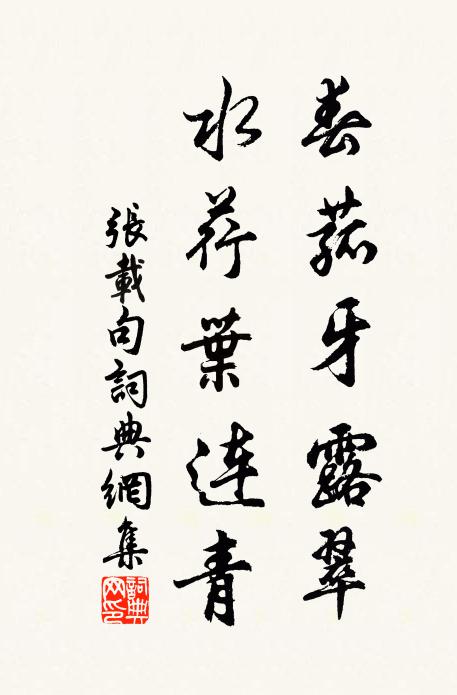 春菰牙露翠
水荇葉連青
張載句詞典網集
詞典
网印